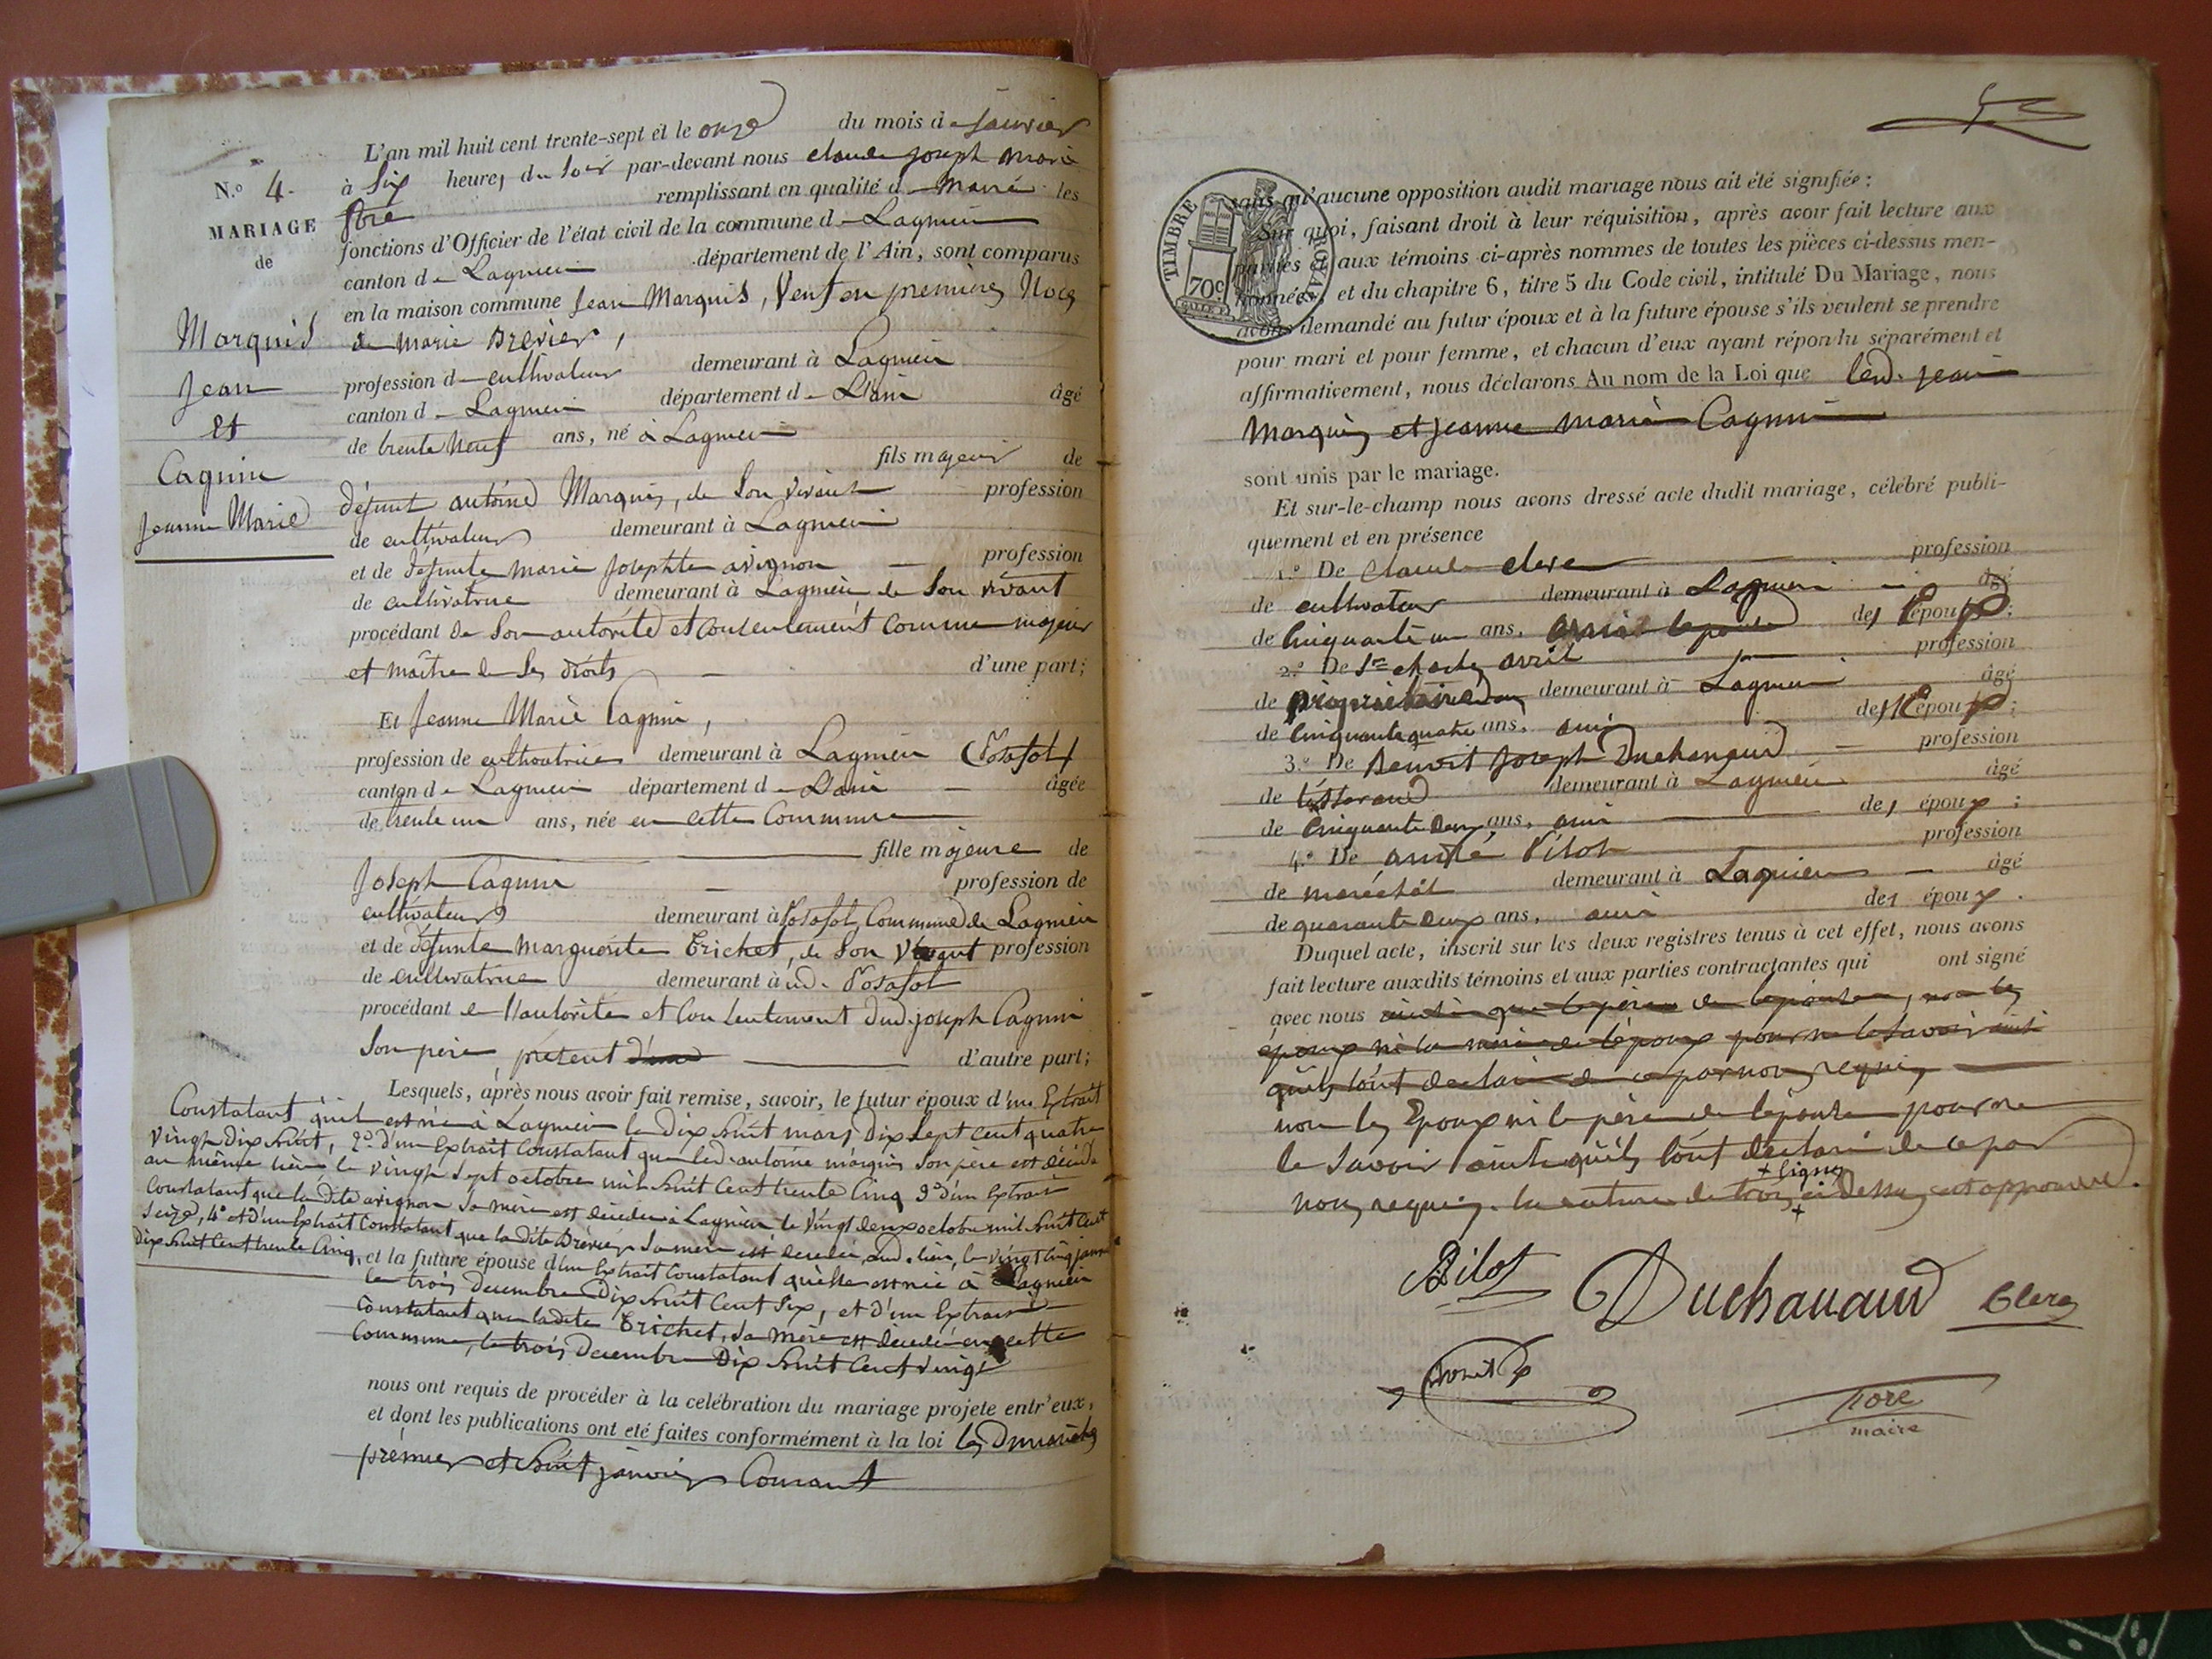 L'an mil huit cent trente-sept et le onze du mois de janvier
N.o 4. à six heures du soir par-devant nous claude joseph marie
Tore remplissant en qualité de maire les
MARIAGE fonctions d'Officier de l'état civil de la commune de Lagnieu
de canton de Lagnieu département de l'Ain, sont comparus
en la maison commune Jean Marquis, veuf en premières Noces
Marquis de marie Brevier,
Jean profession de cultivateur demeurant à Lagnieu
et canton de Lagnieu département de L'ain âgé
de trente neuf ans, né à Lagnieu
Cagnin fils majeur de
Jeanne Marie défunt antoine Marquis, de son vivant profession
de cultivateur demeurant à Lagnieu
et de défunte marie josephte avignon profession
de cultivatrice demeurant à Lagnieu de son vivant
procédant de son autorité et consentement comme majeur
et maître de ses droits d'une part;
Et Jeanne Marie Cagnin,
profession de cultivatrice demeurant à Lagnieu (Posafol)
canton de Lagnieu département de L'ain âgée
de trente un ans, née en cette Commune
fille majeure de
Joseph Cagnin profession de
cultivateur demeurant à Posafol, Commune de Lagnieu
et de défunte marguerite Trichet, de son vivant profession
de cultivatrice demeurant à ud. Posafol
procédant de l'autorité et consentement dud. joseph Cagnin
son père, présent d'autre part;
Lesquels, après nous avoir fait remise, savoir, le futur époux d'un Extrait
Constatant qu'il est né à Lagnieu le dix huit mars dix sept cent quatre
vingt dix huit, 2.o d'un Extrait Constatant que led. antoine marquis son père est décédé
au même lieu le vingt sept octobre mil huit cent trente cinq 3.o d'un Extrait
constatant que la dite avignon sa mère est décédée à Lagnieu le vingt deux octobre mil huit cent
seize, 4.o et d'un Extrait Constatant que la dite Brevier sa mère est décédée aud. lieu, le vingt cinq janvier
dix huit cent trente cinq, et la future épouse d'un Extrait constatant qu'elle est née à Lagnieu
le trois decembre dix huit cent six, et d'un Extrait
Constatant que ladite Trichet, sa mère est décédée en cette
Commune, le trois decembre dix huit cent vingt
nous ont requis de procéder à la celébration du mariage projete entr'eux,
et dont les publications ont eté faites conformément à la loi les Dimanches
premier et huit janvier Courant
5
TIMBRE ROYAL
70c
sans qu'aucune opposition audit mariage nous ait été signifiée:
Sur quoi, faisant droit à leur réquisition, après avoir fait lecture aux
parties et aux témoins ci-après nommes de toutes les pièces ci-dessus men-
tionnées, et du chapitre 6, titre 5 du Code civil, intitulé Du Mariage, nous
avons demandé au futur époux et à la future épouse s'ils veulent se prendre
pour mari et pour femme, et chacun d'eux ayant répondu séparément et
affirmativement, nous déclarons Au nom de la Loi que led. jean
Marquis et jeanne marie Cagnin
sont unis par le mariage.
Et sur-le-champ nous avons dressé acte dudit mariage, célébré publi-
quement et en présence
1.o De Claude clere profession
de cultivateur demeurant à Lagnieu âgé
de Cinquante un ans, des Epoux;
2.o De Sr charles avril profession
de propriétaire demeurant à Lagnieu âgé
de Cinquante quatre ans, ami des Epoux;
3.o De Benoit Joseph Duchanaud profession
de tisserand demeurant à Lagnieu âgé
de Cinquante deux ans, ami des époux;
4.o De andré Pilot profession
de maréchal demeurant à Lagnieu âgé
de quarante deux ans, ami des époux.
Duquel acte, inscrit sur les deux registres tenus à cet effet, nous avons
fait lecture auxdits témoins et aux parties contractantes qui ont signé
avec nous ainsi que le père de l'epouse, non les
époux ni la mère de l'époux pour ne le savoir ainsi
qu'ils l'ont déclaré de ce par nous requis,
non les Epoux ni le père de l'epouse pour ne
le savoir ainsi qu'ils l'ont declaré de ce par
+ lignes
nous requis. la rature de trois + ci dessus est approuvée.
Pilot Duchanaud Clere
Tore
maire